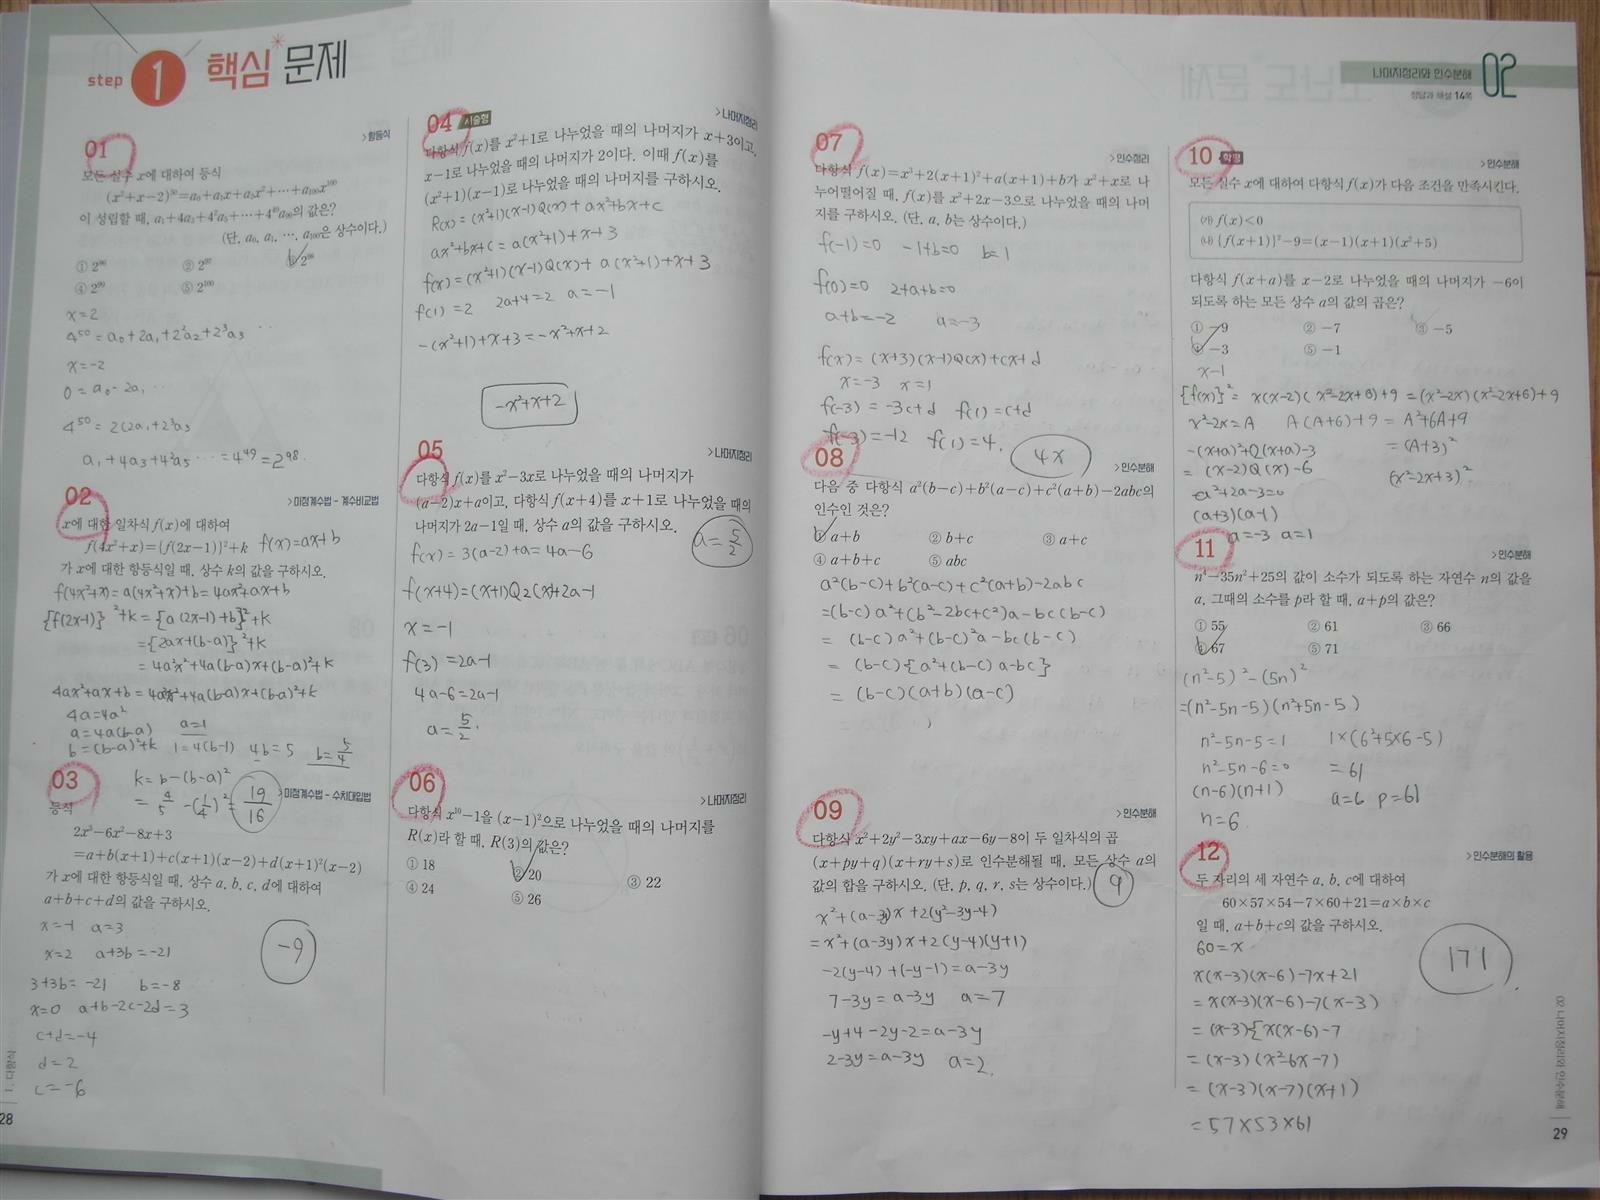 step 1 핵심 문제
01
> 항등식
모든 실수 x에 대하여 등식
(x²+x−2)⁵⁰=a₀+a₁x+a₂x²+⋯+a₁₀₀x¹⁰⁰
이 성립할 때, a₁+4a₃+4²a₅+⋯+4⁴⁹a₉₉의 값은?
(단, a₀, a₁, ⋯, a₁₀₀은 상수이다.)
① 2⁹⁶ ② 2⁹⁷ ③ 2⁹⁸
④ 2⁹⁹ ⑤ 2¹⁰⁰
x=2
4⁵⁰=a₀+2a₁+2²a₂+2³a₃ ⋯
x=−2
0=a₀−2a₁ ⋯
4⁵⁰=2(2a₁+2³a₃
a₁+4a₃+4²a₅ ⋯=4⁴⁹=2⁹⁸.
02
> 미정계수법 - 계수비교법
x에 대한 일차식 f(x)에 대하여
f(4x²+x)={f(2x−1)}²+k f(x)=ax+b
가 x에 대한 항등식일 때, 상수 k의 값을 구하시오.
f(4x²+x)=a(4x²+x)+b=4ax²+ax+b
{f(2x−1)}²+k={a(2x−1)+b}²+k
={2ax+(b−a)}²+k
=4a²x²+4a(b−a)x+(b−a)²+k
4ax²+ax+b=4a²x²+4a(b−a)x+(b−a)²+k
4a=4a²
a=4a(b−a) a=1
b=(b−a)²+k 1=4(b−1) 4b=5 b=5/4
k=b−(b−a)²
=4/5−(1/4)²= 19/16
03
> 미정계수법 - 수치대입법
등식
2x³−6x²−8x+3
=a+b(x+1)+c(x+1)(x−2)+d(x+1)²(x−2)
가 x에 대한 항등식일 때, 상수 a, b, c, d에 대하여
a+b+c+d의 값을 구하시오.
x=−1 a=3
x=2 a+3b=−21
−9
3+3b=−21 b=−8
x=0 a+b−2c−2d=3
c+d=−4
d=2
c=−6
1. 다항식
28
04 서술형
> 나머지정리
다항식 f(x)를 x²+1로 나누었을 때의 나머지가 x+3이고,
x−1로 나누었을 때의 나머지가 2이다. 이때 f(x)를
(x²+1)(x−1)로 나누었을 때의 나머지를 구하시오.
R(x)=(x²+1)(x−1)Q(x)+ax²+bx+c
ax²+bx+c=a(x²+1)+x+3
f(x)=(x²+1)(x−1)Q(x)+a(x²+1)+x+3
f(1)=2 2a+4=2 a=−1
−(x²+1)+x+3=−x²+x+2
−x²+x+2
05
> 나머지정리
다항식 f(x)를 x²−3x로 나누었을 때의 나머지가
(a−2)x+a이고, 다항식 f(x+4)를 x+1로 나누었을 때의
나머지가 2a−1일 때, 상수 a의 값을 구하시오.
a=5/2
f(x)=3(a−2)+a=4a−6
f(x+4)=(x+1)Q₂(x)+2a−1
x=−1
f(3)=2a−1
4a−6=2a−1
a=5/2.
06
> 나머지정리
다항식 x¹⁰−1을 (x−1)²으로 나누었을 때의 나머지를
R(x)라 할 때, R(3)의 값은?
① 18 ② 20 ③ 22
④ 24 ⑤ 26
나머지정리와 인수분해 02
정답과 해설 14쪽
07
> 인수정리
다항식 f(x)=x³+2(x+1)²+a(x+1)+b가 x²+x로 나
누어떨어질 때, f(x)를 x²+2x−3으로 나누었을 때의 나머
지를 구하시오. (단, a, b는 상수이다.)
f(−1)=0 −1+b=0 b=1
f(0)=0 2+a+b=0
a+b=−2 a=−3
f(x)=(x+3)(x−1)Q(x)+cx+d
x=−3 x=1
f(−3)=−3c+d f(1)=c+d
f(−3)=−12 f(1)=4.
4x
08
> 인수분해
다음 중 다항식 a²(b−c)+b²(a−c)+c²(a+b)−2abc의
인수인 것은?
① a+b ② b+c ③ a+c
④ a+b+c ⑤ abc
a²(b−c)+b²(a−c)+c²(a+b)−2abc
=(b−c)a²+(b²−2bc+c²)a−bc(b−c)
=(b−c)a²+(b−c)²a−bc(b−c)
=(b−c){a²+(b−c)a−bc}
=(b−c)(a+b)(a−c)
09
> 인수분해
다항식 x²+2y²−3xy+ax−6y−8이 두 일차식의 곱
(x+py+q)(x+ry+s)로 인수분해될 때, 모든 상수 a의
값의 합을 구하시오. (단, p, q, r, s는 상수이다.) 9
x²+(a−3y)x+2(y²−3y−4)
=x²+(a−3y)x+2(y−4)(y+1)
−2(y−4)+(−y−1)=a−3y
7−3y=a−3y a=7
−y+4−2y−2=a−3y
2−3y=a−3y a=2.
10 학평
> 인수분해
모든 실수 x에 대하여 다항식 f(x)가 다음 조건을 만족시킨다.
㈎ f(x)<0
㈏ {f(x+1)}²−9=(x−1)(x+1)(x²+5)
다항식 f(x+a)를 x−2로 나누었을 때의 나머지가 −6이
되도록 하는 모든 상수 a의 값의 곱은?
① −9 ② −7 ③ −5
④ −3 ⑤ −1
x−1
{f(x)}²=x(x−2)(x²−2x+6)+9=(x²−2x)(x²−2x+6)+9
x²−2x=A A(A+6)+9=A²+6A+9
−(x+a)²+2(x+a)−3 =(A+3)²
=(x−2)Q(x)−6 (x²−2x+3)².
−a²+2a−3=0
(a+3)(a−1)
a=−3 a=1
11
> 인수분해
n⁴−35n²+25의 값이 소수가 되도록 하는 자연수 n의 값을
a, 그때의 소수를 p라 할 때, a+p의 값은?
① 55 ② 61 ③ 66
④ 67 ⑤ 71
(n²−5)²−(5n)²
=(n²−5n−5)(n²+5n−5)
n²−5n−5=1 1×(6²+5×6−5)
n²−5n−6=0 =61
(n−6)(n+1) a=6 p=61
n=6.
12
> 인수분해의 활용
두 자리의 세 자연수 a, b, c에 대하여
60×57×54−7×60+21=a×b×c
일 때, a+b+c의 값을 구하시오.
60=x
171
x(x−3)(x−6)−7x+21
=x(x−3)(x−6)−7(x−3)
=(x−3){x(x−6)−7
=(x−3)(x²−6x−7)
=(x−3)(x−7)(x+1)
=57×53×61
02 나머지정리와 인수분해
29